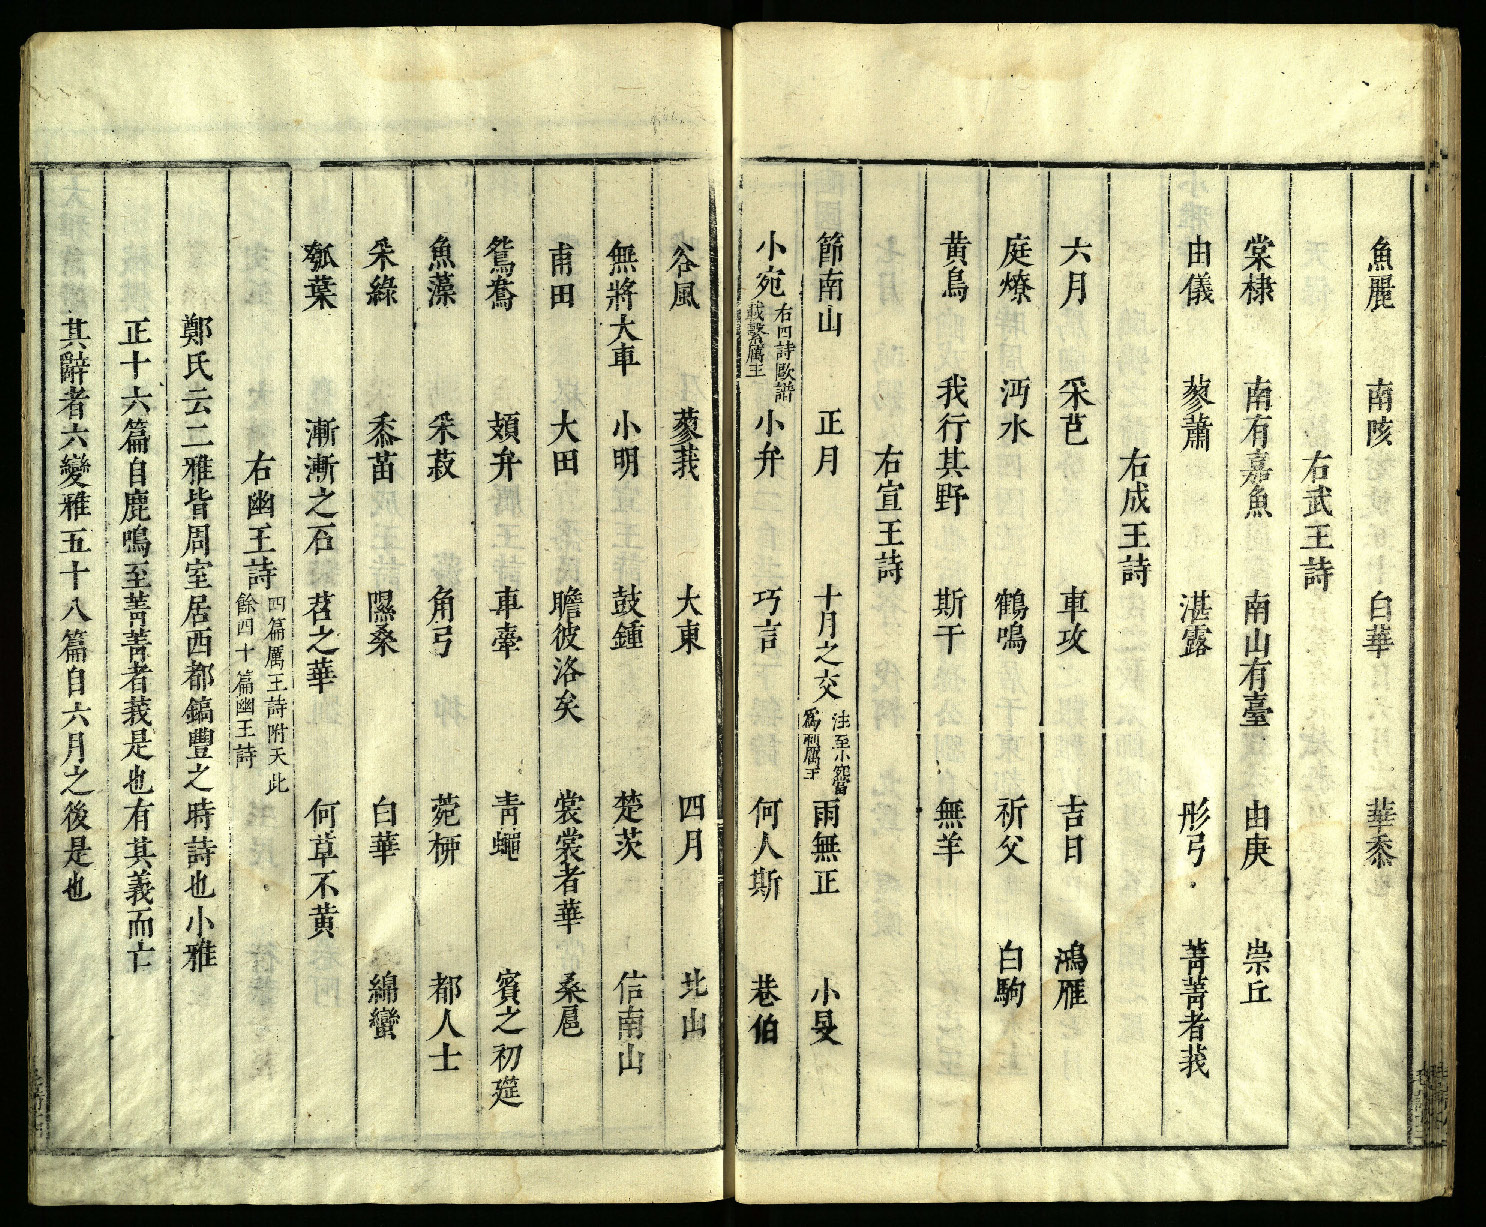 魚麗 南陔 白華 華黍
右武王詩
棠棣 南有嘉魚 南山有臺 由庚 崇丘
由儀 蓼蕭 湛露 彤弓 菁菁者莪
右成王詩
六月 采芑 車攻 吉日 鴻雁
庭燎 沔水 鶴鳴 祈父 白駒
黄鳥 我行其野 斯干 無羊
右宣王詩
節南山 正月 十月之交 注至小宛當爲刺厲王 雨無正 小旻
小宛 右四詩歐譜 載繫厲王 小弁 巧言 何人斯 巷伯
谷風 蓼莪 大東 四月 北山
無將大車 小明 鼓鍾 楚茨 信南山
甫田 大田 瞻彼洛矣 裳裳者華 桑扈
鴛鴦 頍弁 車舝 青蠅 賓之初筵
魚藻 采菽 角弓 菀栁 都人士
采綠 黍苗 隰桑 白華 綿蠻
瓠葉 漸漸之石 苕之華 何草不黄
右幽王詩 四篇厲王詩附天此 餘四十篇幽王詩
鄭氏云二雅皆周室居西都鎬豐之時詩也小雅
正十六篇自鹿鳴至菁菁者莪是也有其義而亡
其辭者六變雅五十八篇自六月之後是也